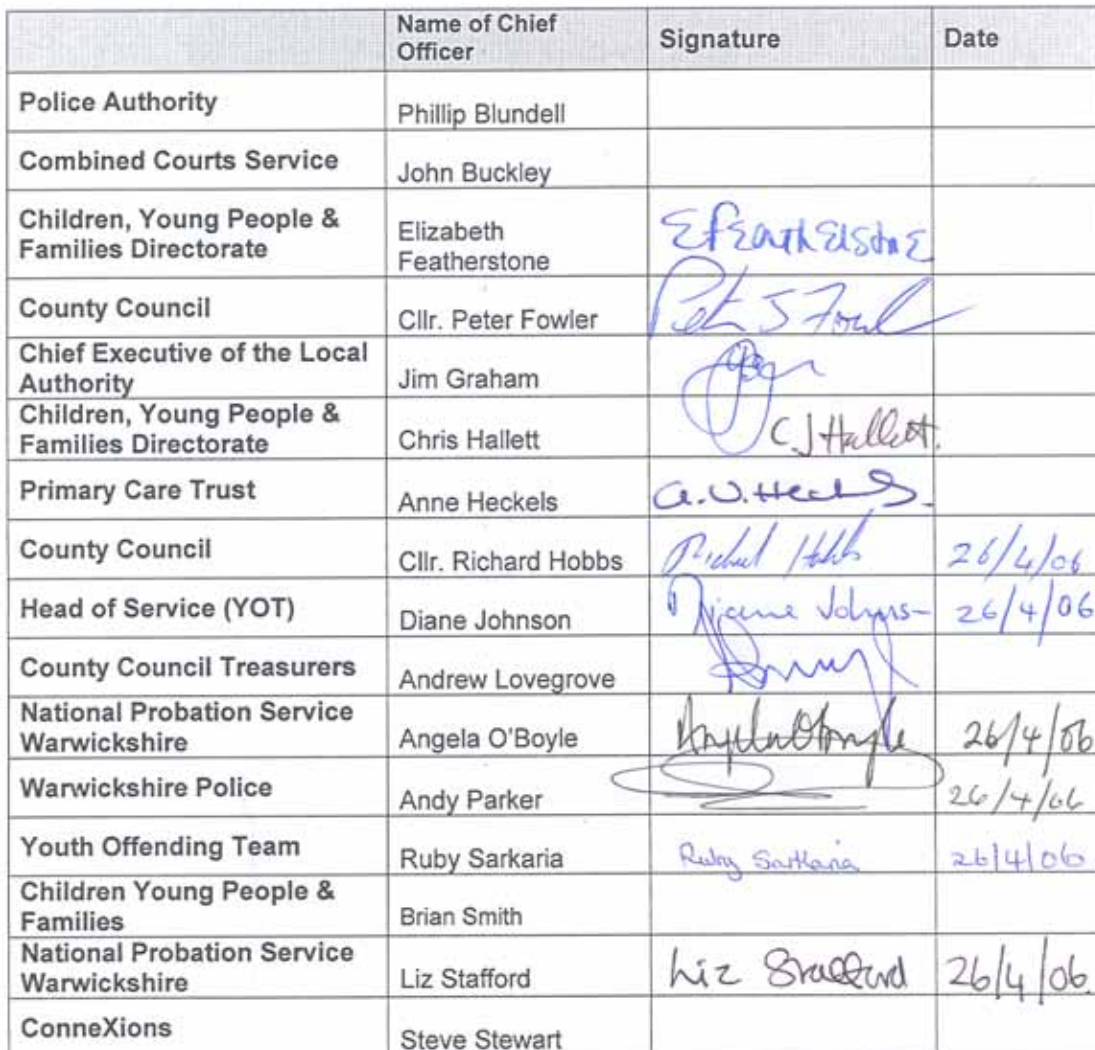 Name of Chief
Officer
Signature
Date
Police Authority
Phillip Blundell
Combined Courts Service
John Buckley
Children, Young People &
Families Directorate
Elizabeth
Featherstone
EFEathElstnE
County Council
Cllr. Peter Fowler
Peter J Fowl
Chief Executive of the Local
Authority
Jim Graham
Children, Young People &
Families Directorate
Chris Hallett
C.J Hallett.
Primary Care Trust
Anne Heckels
a.v.Heckels.
County Council
Cllr. Richard Hobbs
Richard Hobbs
26/4/06
Head of Service (YOT)
Diane Johnson
Diane Johns
26/4/06
County Council Treasurers
Andrew Lovegrove
National Probation Service
Warwickshire
Angela O'Boyle
Angela O'Boyle
26/4/06
Warwickshire Police
Andy Parker
26/4/06
Youth Offending Team
Ruby Sarkaria
Ruby Sarkaria
26/4/06
Children Young People &
Families
Brian Smith
National Probation Service
Warwickshire
Liz Stafford
Liz Stafford
26/4/06.
ConneXions
Steve Stewart